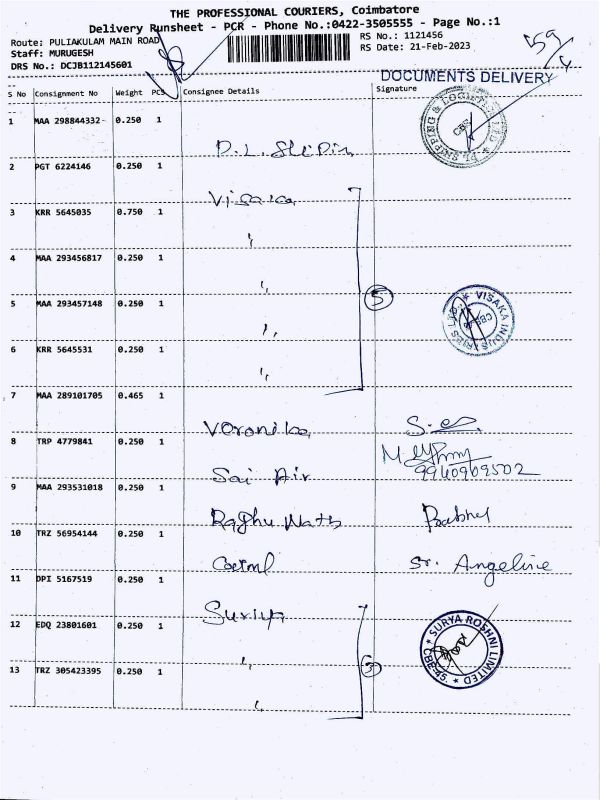 THE PROFESSIONAL COURIERS, Coimbatore
Delivery Runsheet - PCR - Phone No.:0422-3505555 - Page No.:1
Route: PULIAKULAM MAIN ROAD
Staff: MURUGESH
DRS No.: DCJB112145601
RS No.: 1121456
RS Date: 21-Feb-2023
DOCUMENTS DELIVERY
S No Consignment No Weight PCS Consignee Details Signature
1 MAA 298844332 0.250 1
2 PGT 6224146 0.250 1 Visaka
3 KRR 5645035 0.750 1 "
4 MAA 293456817 0.250 1 "
5 MAA 293457148 0.250 1 "
6 KRR 5645531 0.250 1 "
5
VISAKA INDUSTRIES LTD.
7 MAA 289101705 0.465 1 Veronika
8 TRP 4779841 0.250 1 Sai Air 9940909502
9 MAA 293531018 0.250 1 Raghu Nath Prabhu
10 TRZ 56954144 0.250 1 Sr. Angeline
11 DPI 5167519 0.250 1 Suriya
12 EDQ 23801601 0.250 1 "
13 TRZ 305423395 0.250 1 "
3
SURYA ROSHNI LIMITED
CBE-45.